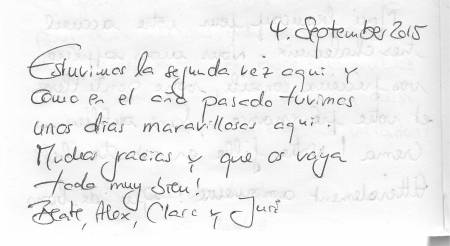 4. September 2015
Estuvimos la segunda vez aqui y
como en el año pasado tuvimos
unos dias maravillosos aqui.
Muchas gracias y que os vaya
todo muy bien!
Beate, Alex, Clara y Juri